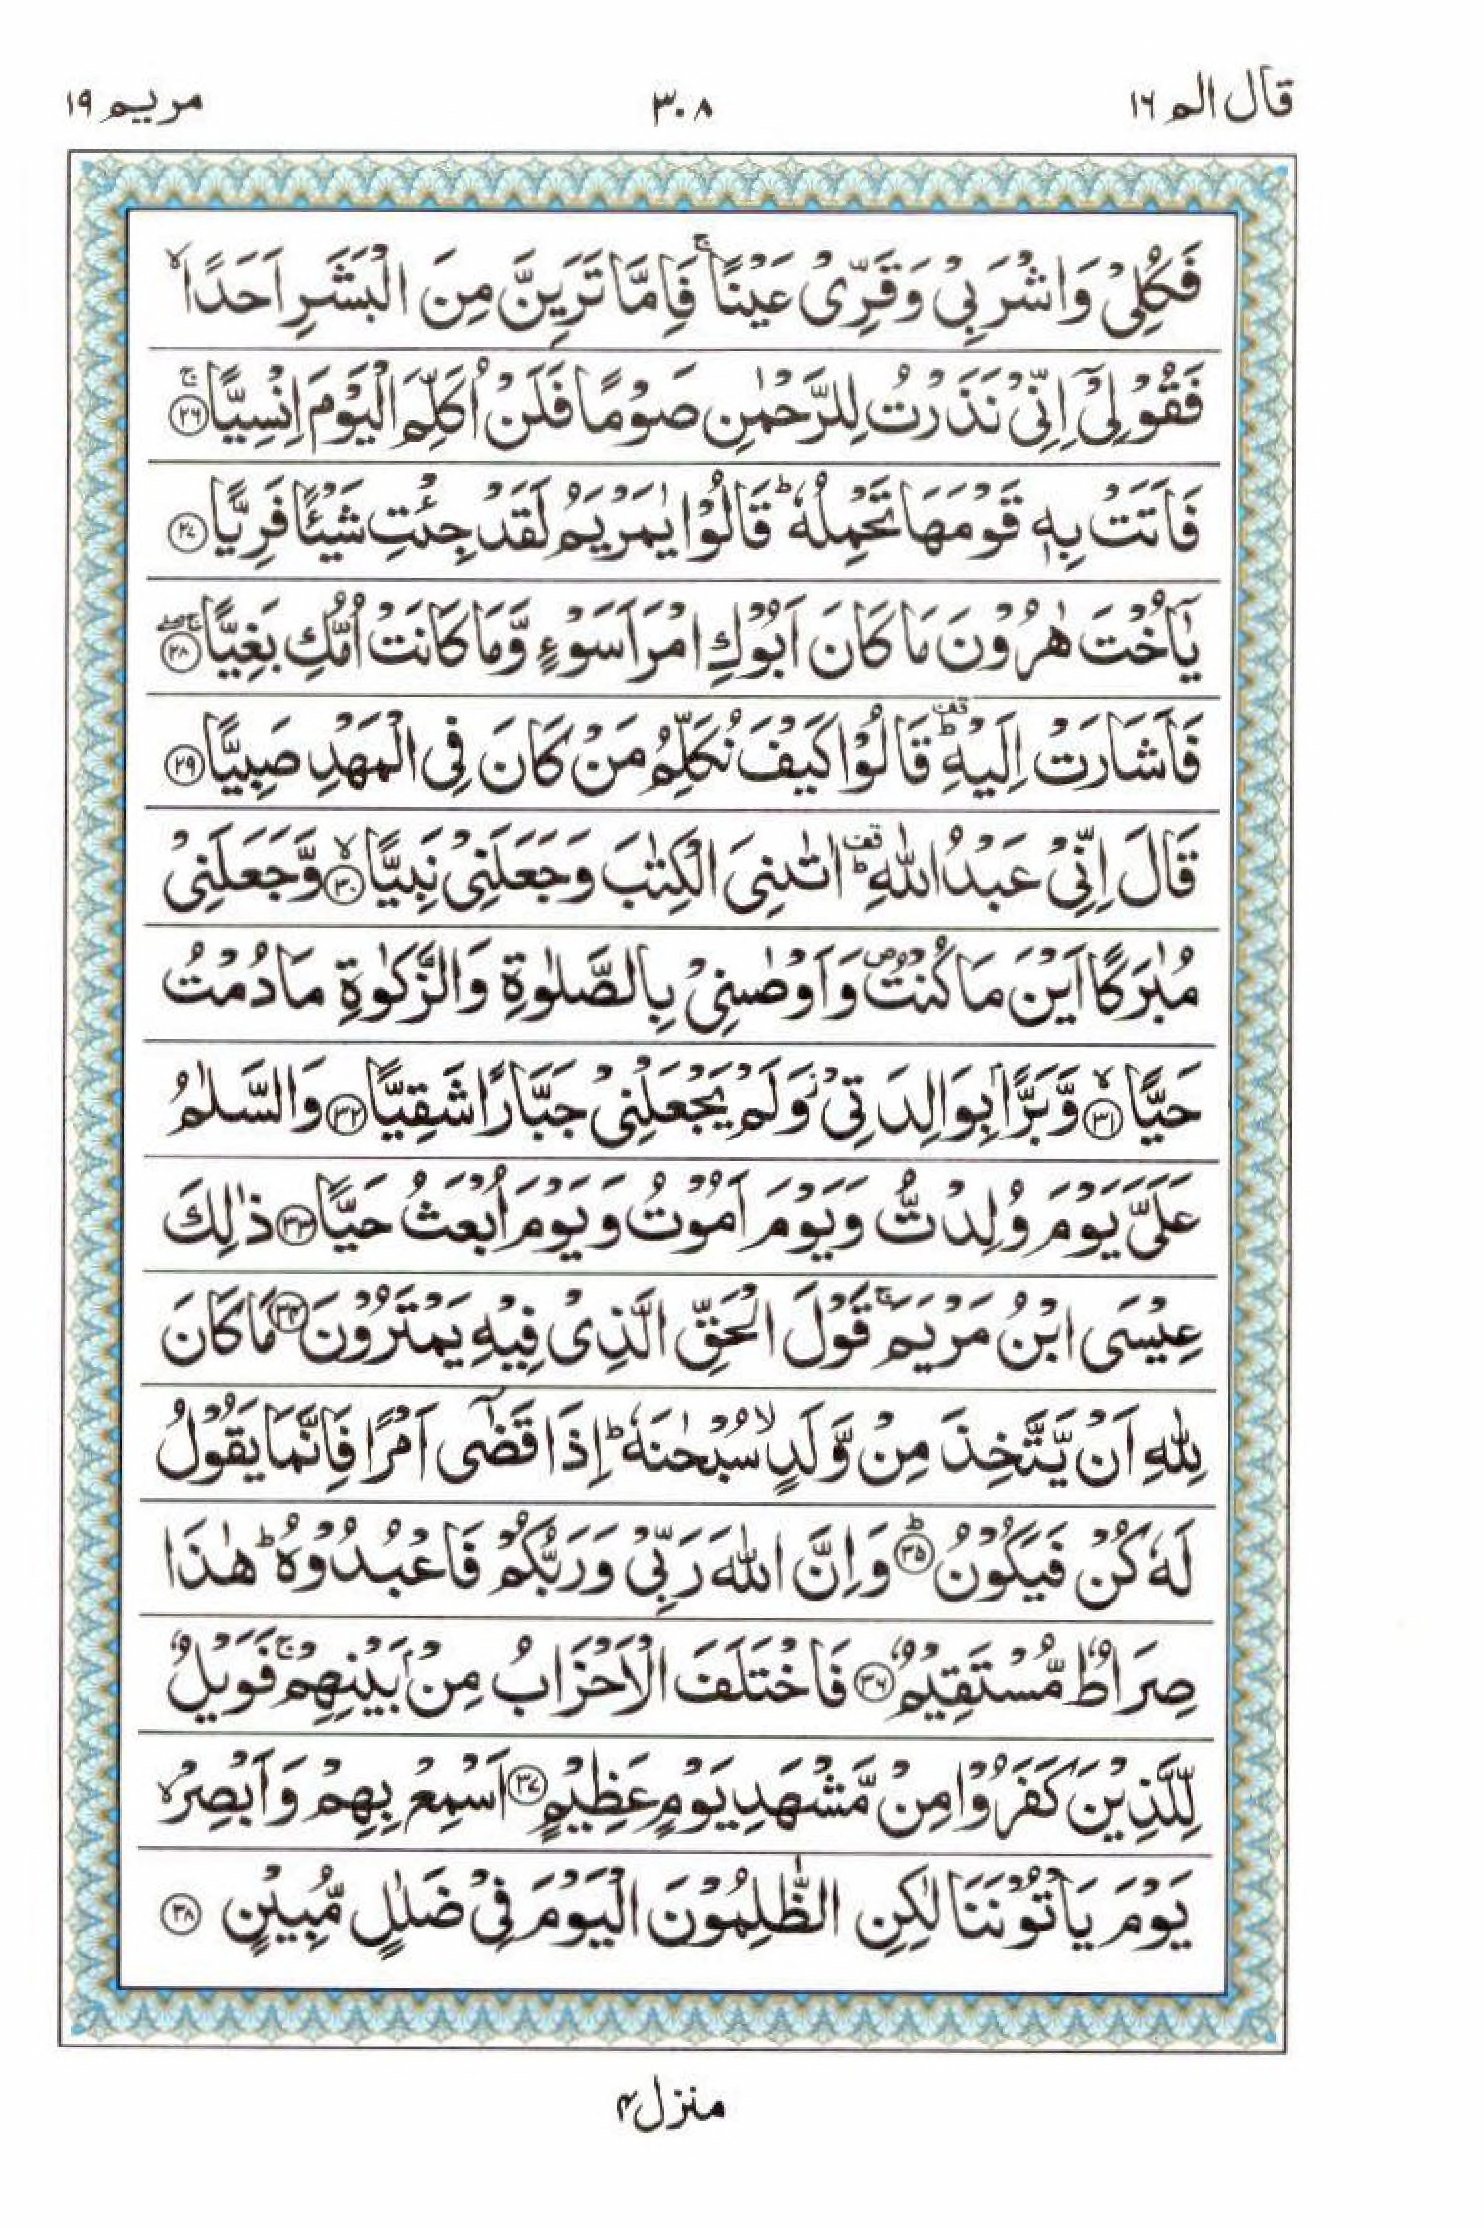 قال الم ١٦
٣٠٨
مريم ١٩
فَكُلِيْ وَاشْرَبِيْ وَقَرِّيْ عَيْنًا ۚ فَاِمَّا تَرَيِنَّ مِنَ الْبَشَرِ اَحَدًا ۙ
فَقُوْلِيْٓ اِنِّيْ نَذَرْتُ لِلرَّحْمٰنِ صَوْمًا فَلَنْ اُكَلِّمَ الْيَوْمَ اِنْسِيًّا ۚ ﴿٢٦﴾
فَاَتَتْ بِهٖ قَوْمَهَا تَحْمِلُهٗ ؕ قَالُوْا يٰمَرْيَمُ لَقَدْ جِئْتِ شَيْـًٔا فَرِيًّا ﴿٢٧﴾
يٰٓاُخْتَ هٰرُوْنَ مَا كَانَ اَبُوْكِ امْرَاَ سَوْءٍ وَّمَا كَانَتْ اُمُّكِ بَغِيًّا ۖۚ ﴿٢٨﴾
فَاَشَارَتْ اِلَيْهِ ؕ قف قَالُوْا كَيْفَ نُكَلِّمُ مَنْ كَانَ فِي الْمَهْدِ صَبِيًّا ﴿٢٩﴾
قَالَ اِنِّيْ عَبْدُ اللّٰهِ ؕ قف اٰتٰىنِيَ الْكِتٰبَ وَجَعَلَنِيْ نَبِيًّا ۙ ﴿٣٠﴾ وَّجَعَلَنِيْ
مُبٰرَكًا اَيْنَ مَا كُنْتُ ۪ وَاَوْصٰىنِيْ بِالصَّلٰوةِ وَالزَّكٰوةِ مَا دُمْتُ
حَيًّا ۙ ﴿٣١﴾ وَّبَرًّۢا بِوَالِدَتِيْ ؗ وَلَمْ يَجْعَلْنِيْ جَبَّارًا شَقِيًّا ﴿٣٢﴾ وَالسَّلٰمُ
عَلَيَّ يَوْمَ وُلِدْتُّ وَيَوْمَ اَمُوْتُ وَيَوْمَ اُبْعَثُ حَيًّا ﴿٣٣﴾ ذٰلِكَ
عِيْسَى ابْنُ مَرْيَمَ ۚ قَوْلَ الْحَقِّ الَّذِيْ فِيْهِ يَمْتَرُوْنَ ﴿٣٤﴾ مَا كَانَ
لِلّٰهِ اَنْ يَّتَّخِذَ مِنْ وَّلَدٍ ۙ سُبْحٰنَهٗ ؕ اِذَا قَضٰٓى اَمْرًا فَاِنَّمَا يَقُوْلُ
لَهٗ كُنْ فَيَكُوْنُ ؕ ﴿٣٥﴾ وَاِنَّ اللّٰهَ رَبِّيْ وَرَبُّكُمْ فَاعْبُدُوْهُ ؕ هٰذَا
صِرَاطٌ مُّسْتَقِيْمٌ ﴿٣٦﴾ فَاخْتَلَفَ الْاَحْزَابُ مِنْۢ بَيْنِهِمْ ۚ فَوَيْلٌ
لِّلَّذِيْنَ كَفَرُوْا مِنْ مَّشْهَدِ يَوْمٍ عَظِيْمٍ ﴿٣٧﴾ اَسْمِعْ بِهِمْ وَاَبْصِرْ ۙ
يَوْمَ يَاْتُوْنَنَا لٰكِنِ الظّٰلِمُوْنَ الْيَوْمَ فِيْ ضَلٰلٍ مُّبِيْنٍ ﴿٣٨﴾
منزل ٤